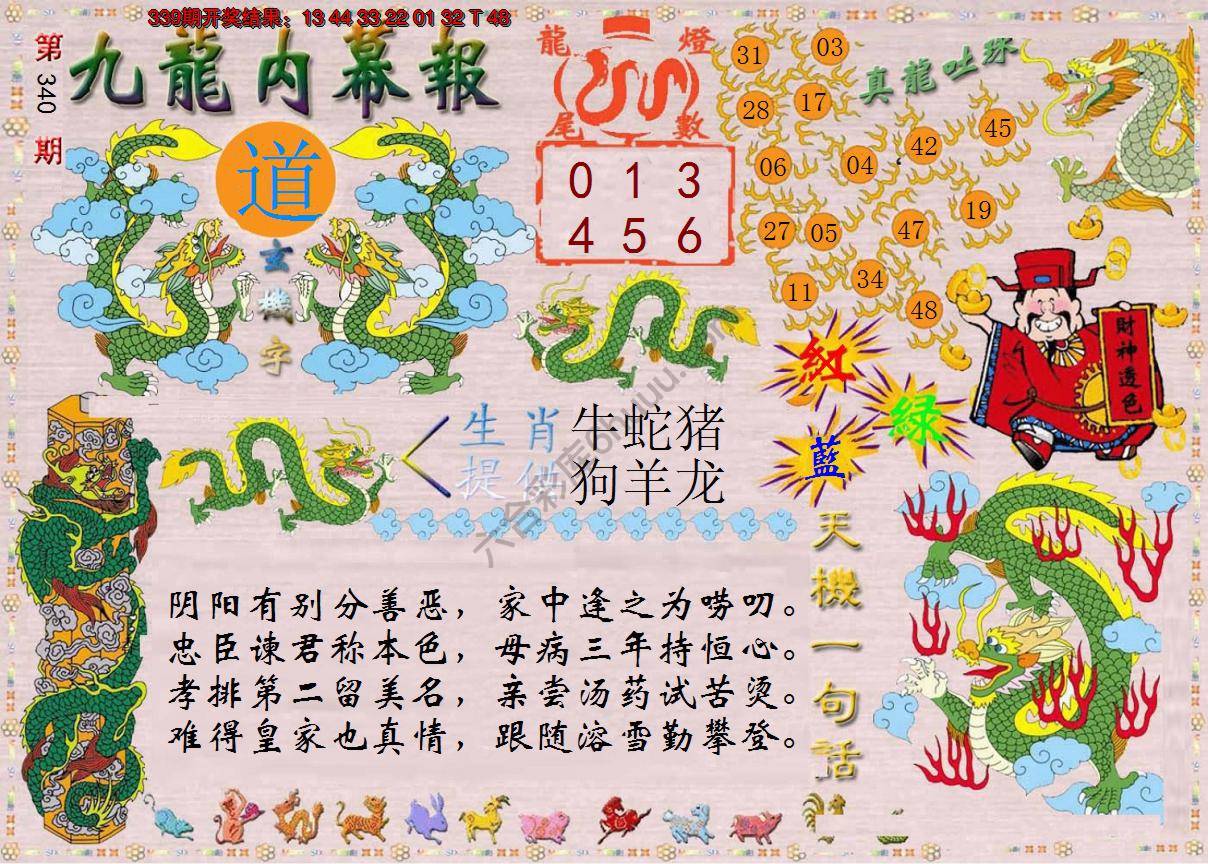 339期开奖结果：13 44 33 22 01 32 T 48
第340期
九龍内幕報
道
玄機字
龍燈
尾數
0 1 3
4 5 6
真龍吐珠
31 03
28 17
06 04 42 45
27 05 47 19
11 34 48
紅
綠
藍
財神透色
生肖 牛蛇猪
提供 狗羊龙
六合彩库
阴阳有别分善恶，家中逢之为唠叨。
忠臣谏君称本色，母病三年持恒心。
孝排第二留美名，亲尝汤药试苦烫。
难得皇家也真情，跟随溶雪勤攀登。
天機一句話